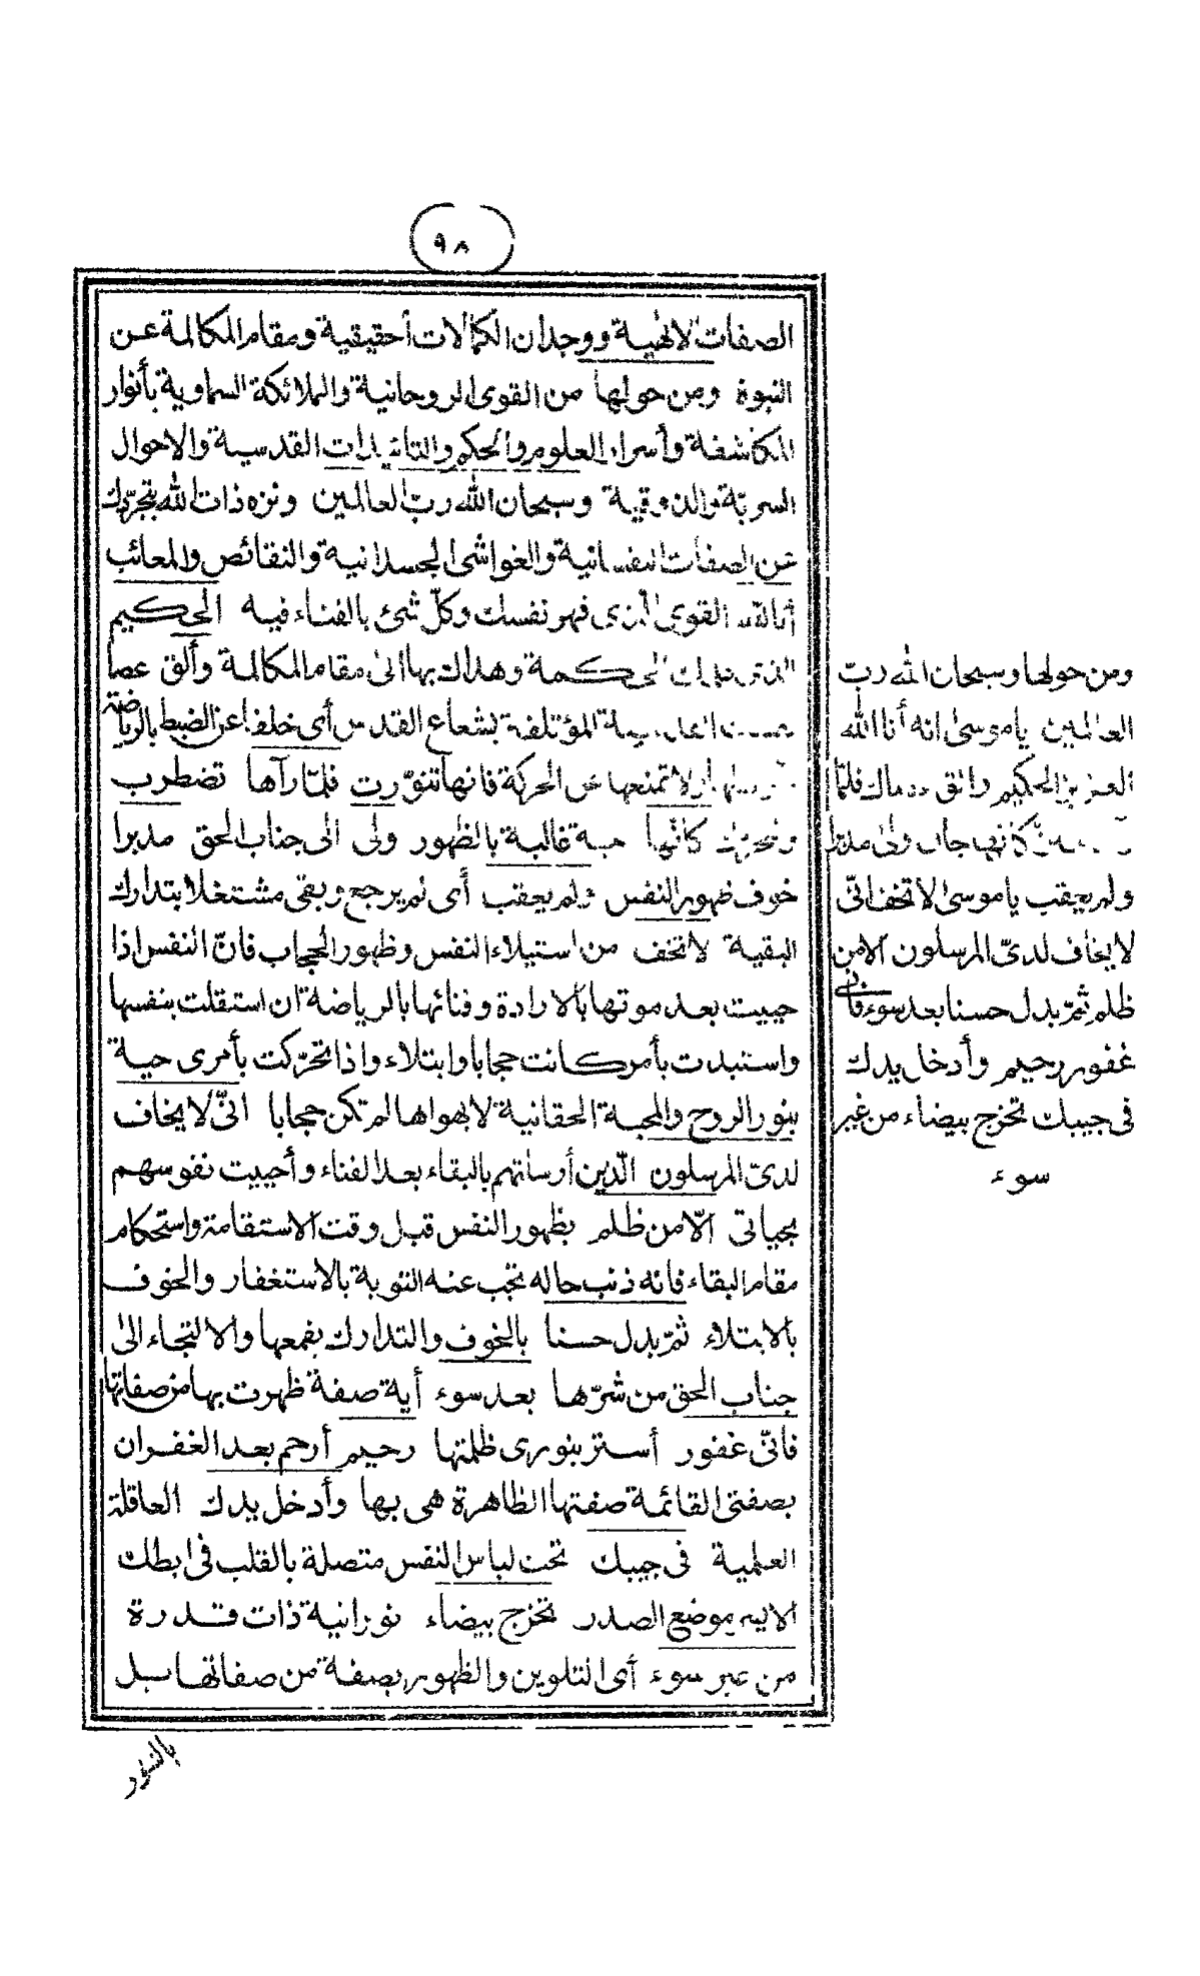 ٩٨
الصفات الالهية ووجدان الكمالات الحقيقية ومقام المكالمة عن
النبوة ومن حولها من القوى الروحانية والملائكة السماوية بأنوار
المكاشفة وأسرار العلوم والحكم والتائيدات القدسية والاحوال
السرية والذوقية وسبحان الله رب العالمين ونزه ذات الله بتجردك
عن الصفات النفسانية والغواشى الجسدانية والنقائص والمعائب
أنا الله القوى الذى فهو نفسك وكل شئ بالفناء فيه الحكيم
الذى الحكمة وهداك بها الى مقام المكالمة وألق عصا
المؤتلفة بشعاع القدس أى خلها عن الضبط بالرياضة
ولا تمنعها عن الحركة فانها تنورت فلما رآها تضطرب
وتتحرك كأنها حية غالبة بالظهور ولى الى جناب الحق مدبرا
خوف ظهور النفس ولم يعقب أى لم يرجع وبقى مشتغلا بتدارك
البقية لا تخف من استيلاء النفس وظهور الحجاب فانّ النفس اذا
حييت بعد موتها بالارادة وفنائها بالرياضة ان استقلت بنفسها
واستبدت بأمر كانت حجابا وابتلاء واذا تحرّكت بأمرى حية
بنور الروح والمحبة الحقانية لا بهواها لم تكن حجابا انىّ لا يخاف
لدىّ المرسلون الّذين أرسلتهم بالبقاء بعد الفناء وأحييت نفوسهم
بحياتى الّا من ظلم بظهور النفس قبل وقت الاستقامة واستحكام
مقام البقاء فانه ذنب حاله تجب عنه التوبة بالاستغفار والخوف
بالابتلاء ثمّ بدل حسنا بالخوف والتدارك بقمعها والالتجاء الى
جناب الحق من شرّها بعد سوء أية صفة ظهرت بها من صفاتها
فانىّ غفور أستر بنورى ظلمتها رحيم أرحم بعد الغفران
بصفتى القائمة صفتها الظاهرة هى بها وأدخل يدك العاقلة
العلمية فى جيبك تحت لباس النفس متصلة بالقلب فى ابطك
الايسر موضع الصدر تخرج بيضاء نورانية ذات قدرة
من غير سوء أى التلوين والظهور بصفة من صفاتها بل
بالنور
ومن حولها وسبحان الله رب
العالمين ياموسى انه أنا الله
العزيز الحكيم وألق عصاك فلمّا
كأنها جان ولى مدبرا
ولم يعقب ياموسى لا تخف انىّ
لا يخاف لدىّ المرسلون الا من
ظلم ثمّ بدل حسنا بعد سوء فانى
غفور رحيم وأدخل يدك
فى جيبك تخرج بيضاء من غير
سوء